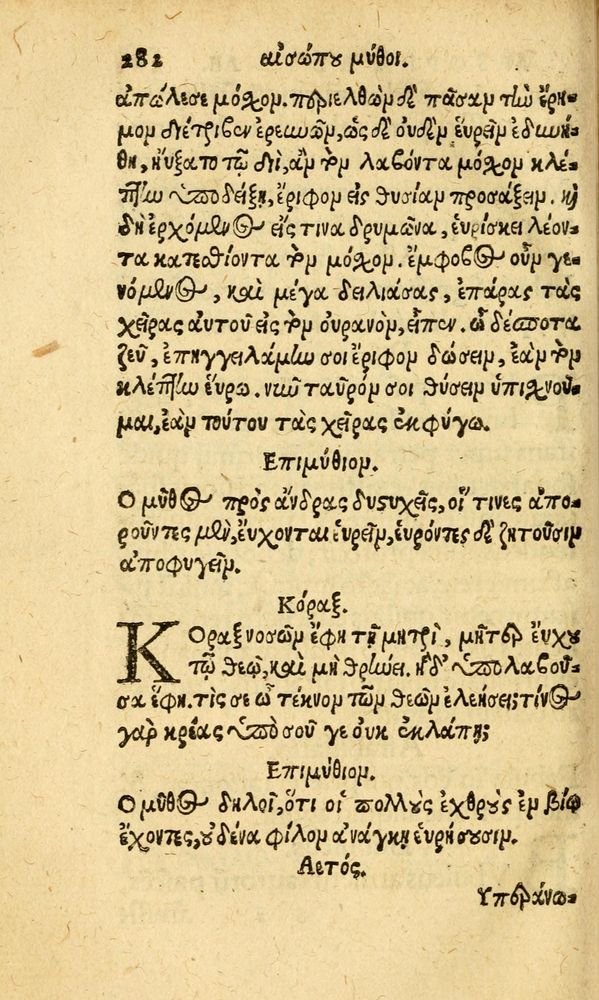 282 αἰσώπου μῦθοι.
ἀπώλεσε μόσχον. περιελθὼν δὲ πᾶσαν τὴν ἔρη-
μον διέτριβεν ἐρευνῶν, ὡς δὲ οὐδὲν εὑρεῖν ἐδυνή-
θη, ηὔξατο τῷ διῒ, ἂν τὸν λαβόντα μόσχον κλέ-
πτην ὑποδείξῃ, ἔριφον εἰς θυσίαν προσάξειν. καὶ
δὴ ἐρχόμενος εἴς τινα δρυμῶνα, εὑρίσκει λέον-
τα κατεσθίοντα τὸν μόσχον. ἔμφοβος οὖν γε-
νόμενος, καὶ μέγα δειλιάσας, ἐπάρας τὰς
χεῖρας αὐτοῦ εἰς τὸν οὐρανὸν, εἶπεν. ὦ δέσποτα
ζεῦ, ἐπηγγειλάμην σοι ἔριφον δώσειν, ἐὰν τὸν
κλέπτην εὕρω. νῦν ταῦρόν σοι θύσειν ὑπισχνοῦ-
μαι, ἐὰν τούτου τὰς χεῖρας ἐκφύγω.
Ἐπιμύθιον.
Ὁ μῦθος πρὸς ἄνδρας δυστυχεῖς, οἵ τινες ἀπο-
ροῦντες μὲν, εὔχονται εὑρεῖν, εὑρόντες δὲ ζητοῦσιν
ἀποφυγεῖν.
Κόραξ.
ΚΟραξ νοσῶν ἔφη τῇ μητρὶ, μῆτερ εὔχου
τῷ θεῷ, καὶ μὴ θρήνει. ἡ δ' ὑπολαβοῦ-
σα ἔφη. τίς σε ὦ τέκνον τῶν θεῶν ἐλεήσει; τίνος
γὰρ κρέας ὑπὸ σοῦ γε οὐκ ἐκλάπη;
Ἐπιμύθιον.
Ὁ μῦθος δηλοῖ, ὅτι οἱ πολλοὺς ἐχθροὺς ἐν βίῳ
ἔχοντες, οὐδένα φίλον ἀνάγκῃ εὑρήσουσιν.
Ἀετός.
Ὑπεράνω-